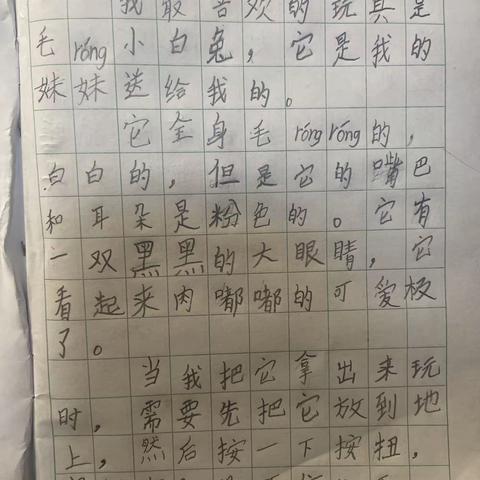 我最喜欢的玩具是
毛róng小白兔，它是我的
妹妹送给我的。
它全身毛róngróng的，
白白的，但是它的嘴巴
和耳朵是粉色的。它有
一双黑黑的大眼睛，它
看起来肉嘟嘟的可爱极
了。
当我把它拿出来玩
时，需要先把它放到地
上，然后按一下按扭，